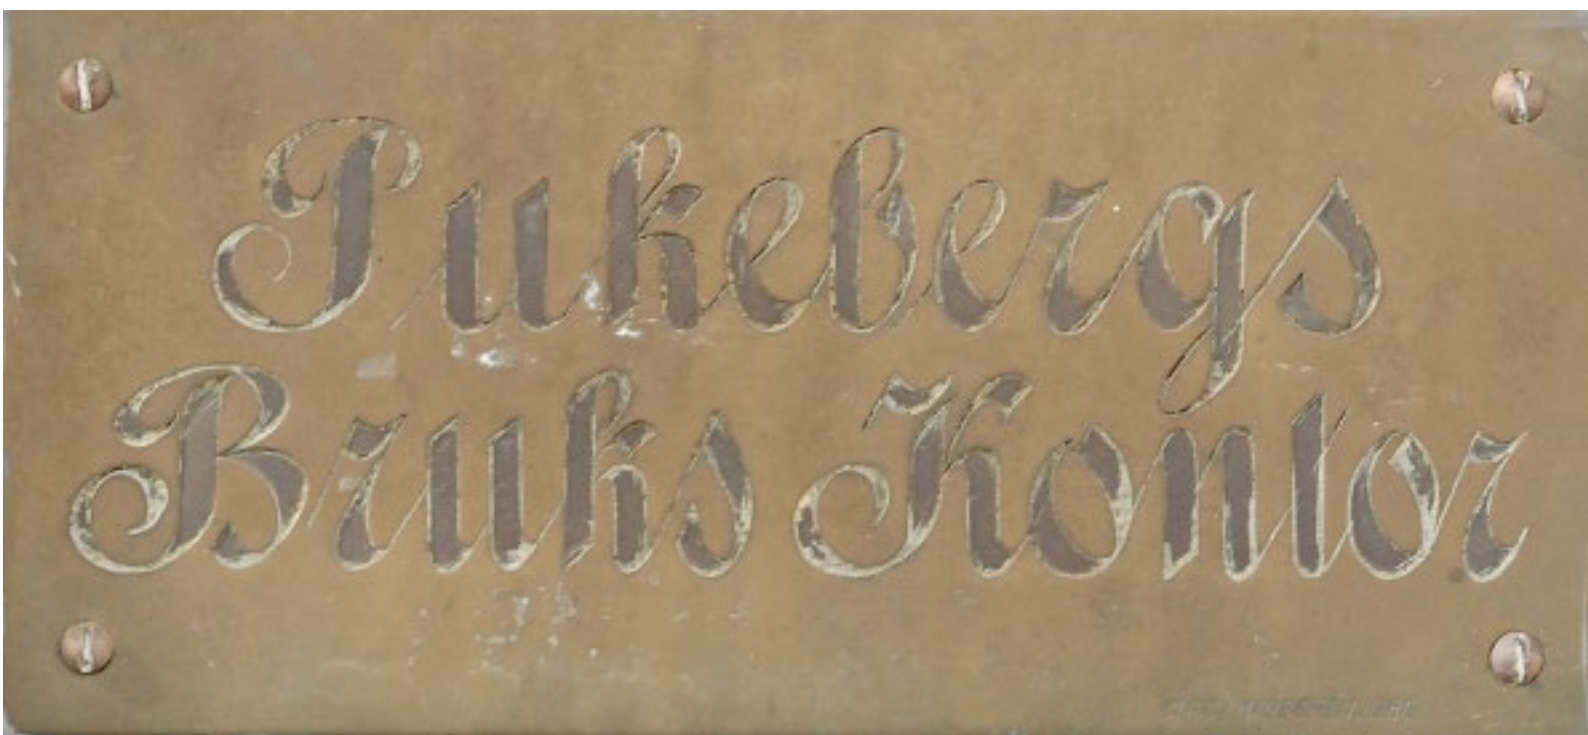 Pukebergs
Bruks Kontor